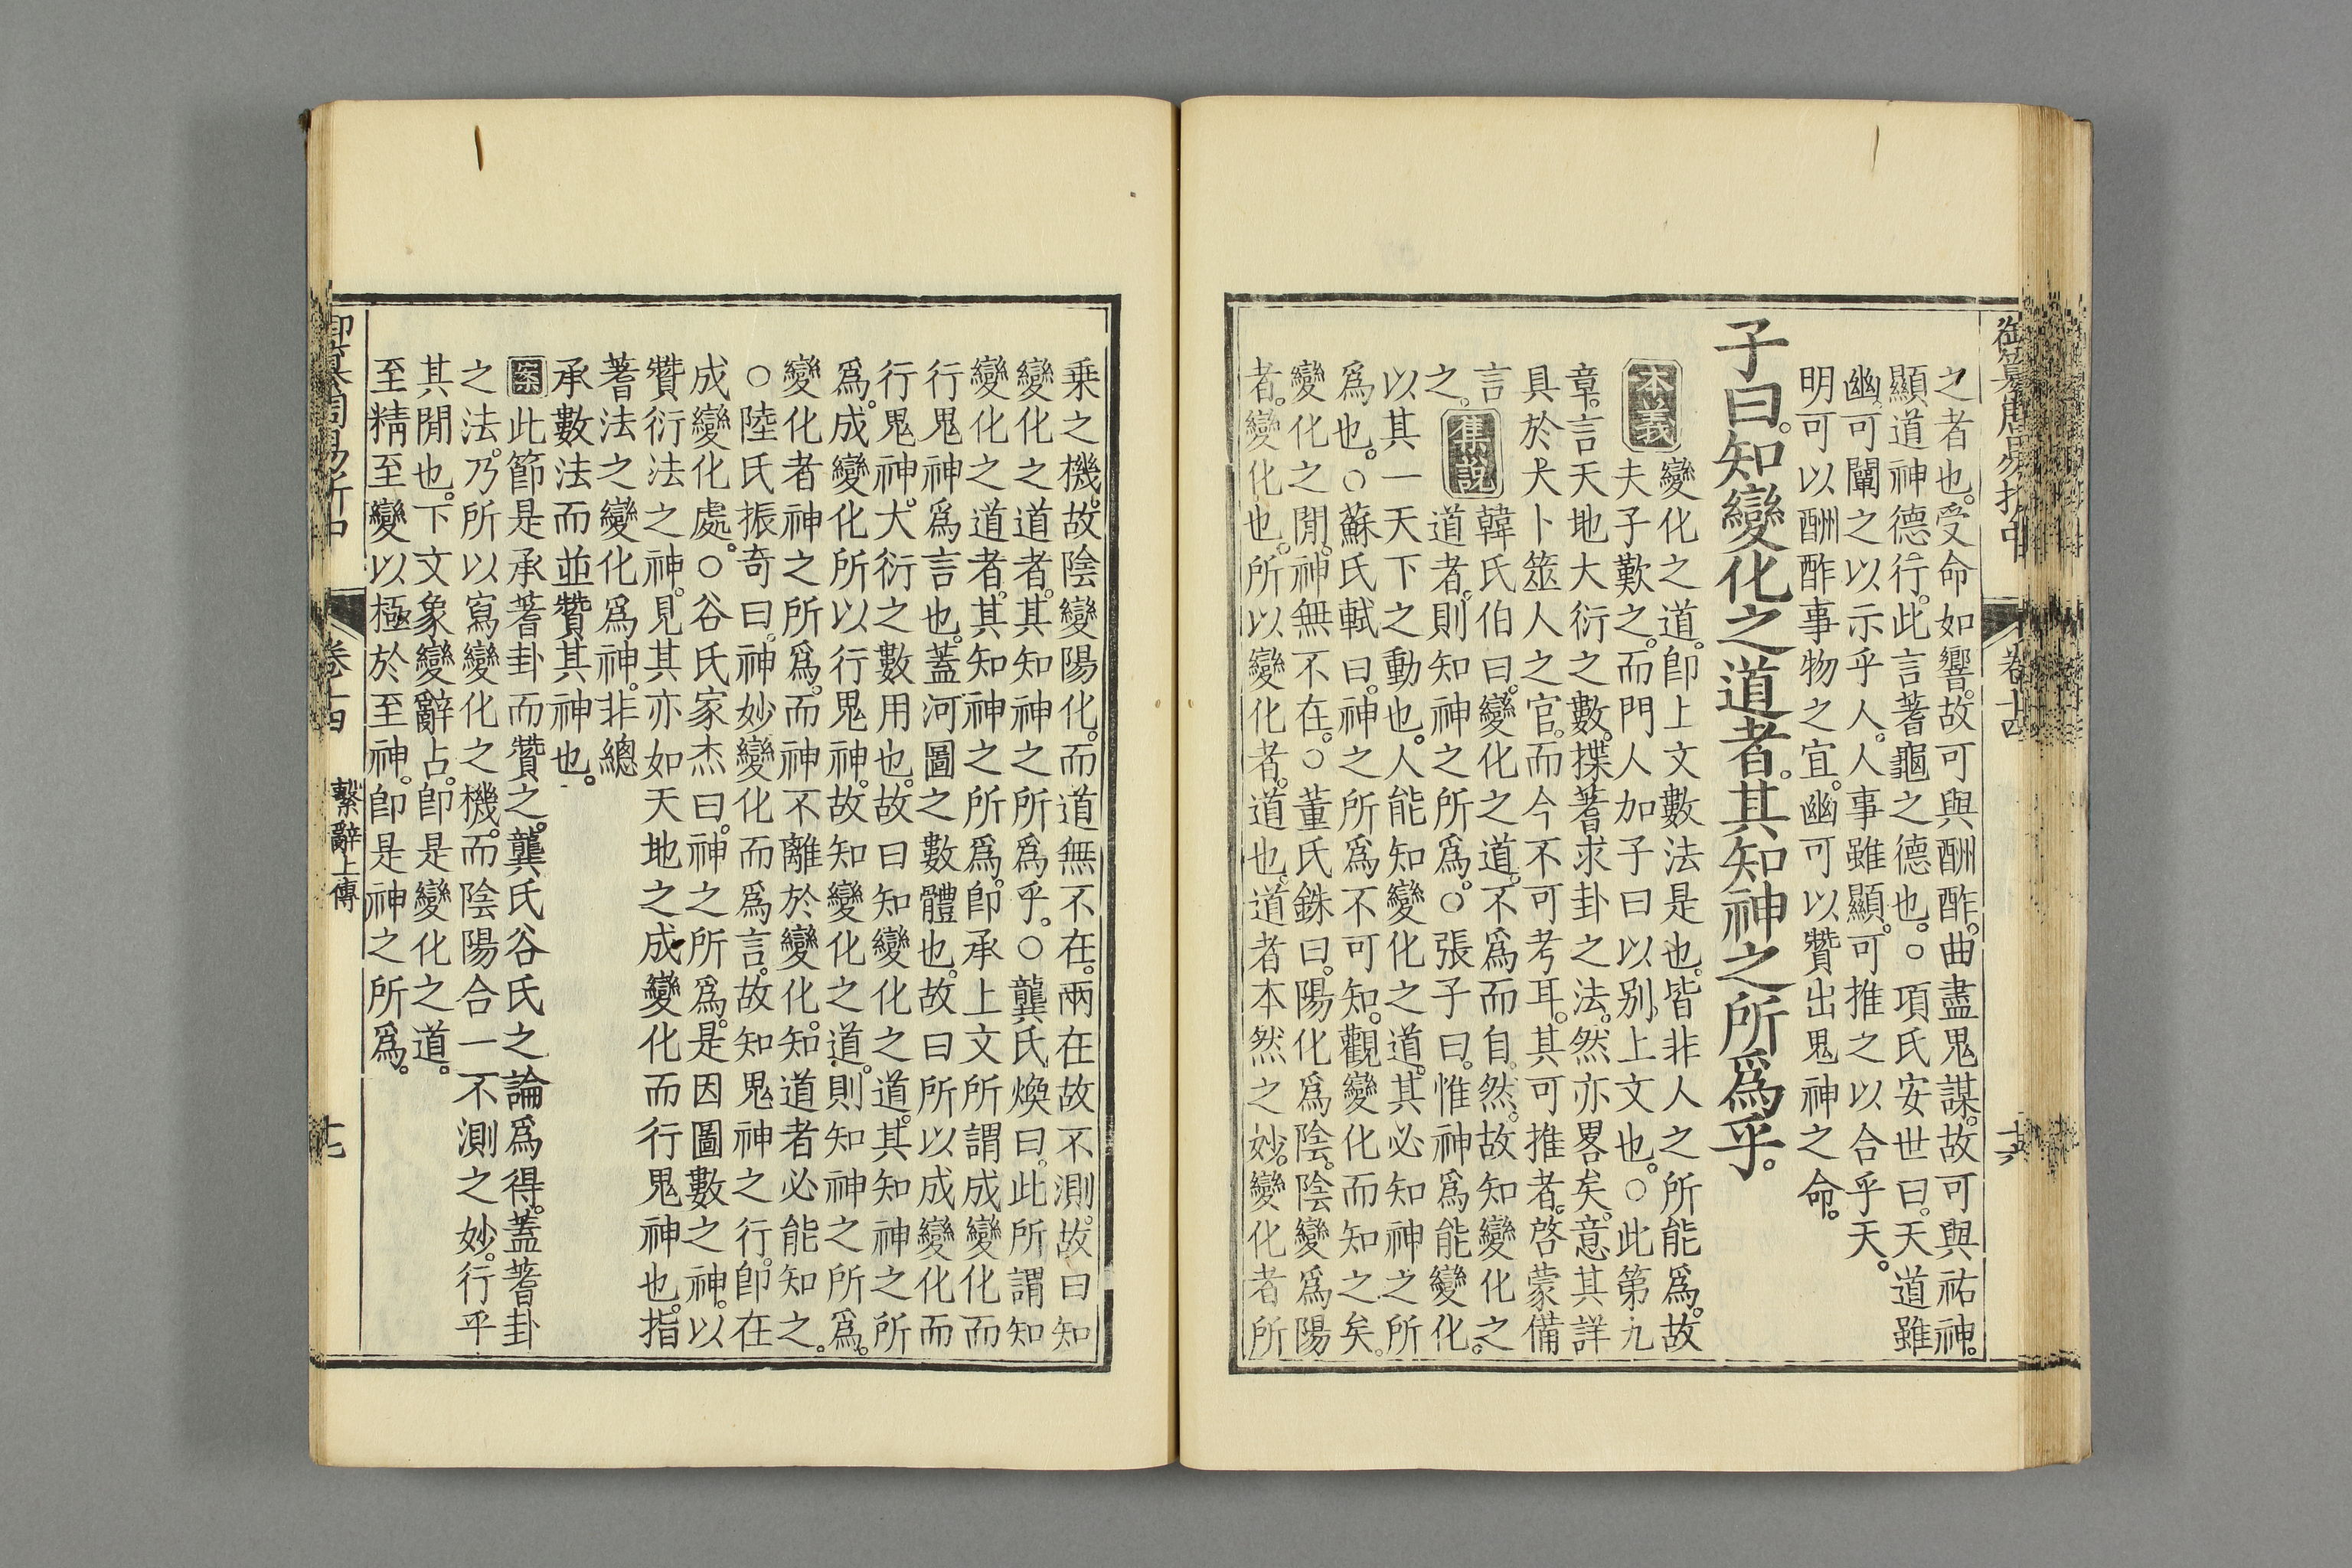 御纂周易折中
卷十四
十六
之者也。受命如響。故可與酬酢。曲盡鬼謀。故可與祐神。
顯道神德行。此言蓍龜之德也。○項氏安世曰。天道雖
幽。可闡之以示乎人。人事雖顯。可推之以合乎天。
明可以酬酢事物之宜。幽可以贊出鬼神之命。
子曰。知變化之道者。其知神之所爲乎。
本義
變化之道。卽上文數法是也。皆非人之所能爲。故
夫子歎之。而門人加子曰以别上文也。○此第九
章。言天地大衍之數。揲蓍求卦之法。然亦畧矣。意其詳
具於大卜筮人之官。而今不可考耳。其可推者。啓蒙備
言
之。
集說
韓氏伯曰。變化之道。不爲而自然。故知變化之
道者。則知神之所爲。○張子曰。惟神爲能變化。
以其一天下之動也。人能知變化之道。其必知神之所
爲也。○蘇氏軾曰。神之所爲不可知。觀變化而知之矣。
變化之閒。神無不在。○董氏銖曰。陽化爲陰。陰變爲陽
者。變化也。所以變化者。道也。道者本然之妙。變化者所
乗之機。故陰變陽化。而道無不在。兩在故不測。故曰知
變化之道者。其知神之所爲乎。○龔氏煥曰。此所謂知
變化之道者。其知神之所爲。卽承上文所謂成變化而
行鬼神爲言也。蓋河圖之數體也。故曰所以成變化而
行鬼神。大衍之數用也。故曰知變化之道。其知神之所
爲。成變化所以行鬼神。故知變化之道。則知神之所爲。
變化者神之所爲。而神不離於變化。知道者必能知之。
○陸氏振奇曰。神妙變化而爲言。故知鬼神之行。卽在
成變化處。○谷氏家杰曰。神之所爲。是因圖數之神。以
贊衍法之神。見其亦如天地之成變化而行鬼神也。指
蓍法之變化爲神。非總
承數法而並贊其神也。
案
此節是承蓍卦而贊之。龔氏谷氏之論爲得。蓋蓍卦
之法。乃所以寫變化之機。而陰陽合一不測之妙。行乎
其閒也。下文象變辭占。卽是變化之道。
至精至變以極於至神。卽是神之所爲。
御纂周易折中
卷十四
繫辭上傳
十七